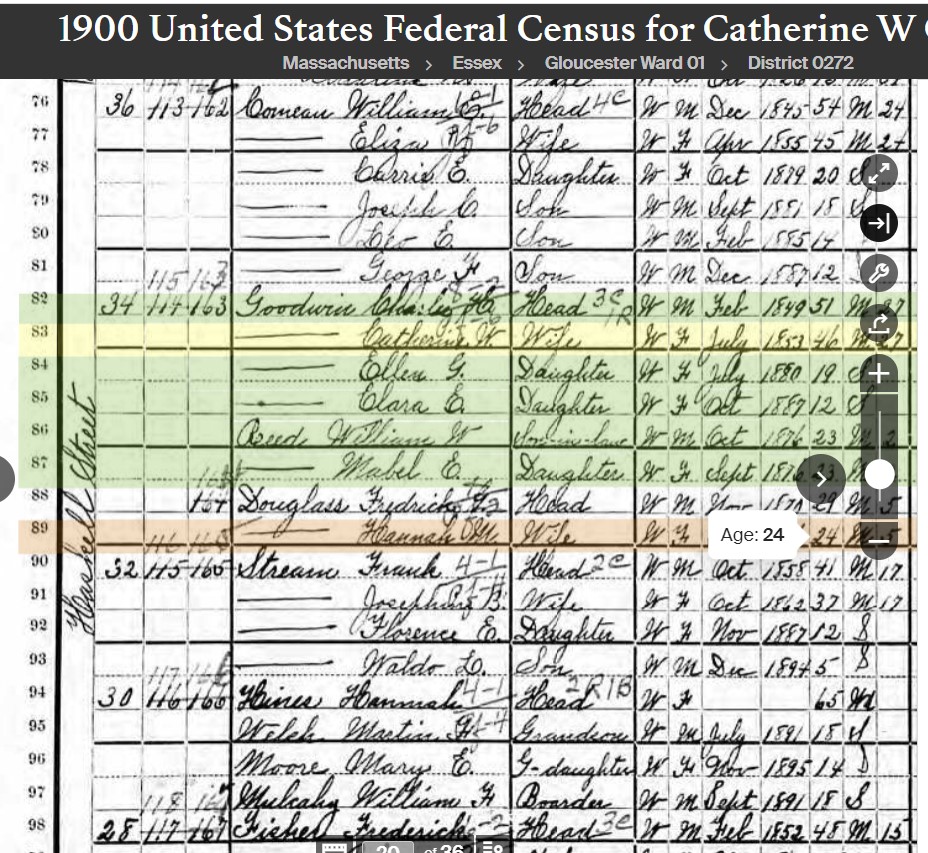 1900 United States Federal Census for Catherine W
Massachusetts > Essex > Gloucester Ward 01 > District 0272
76 36 113 162 Comeau William Head 4C W M Dec 1845 54 M 24
77 Eliza Wife W F Apr 1855 45 M 24
78 Carrie E. Daughter W F Oct 1879 20 S
79 Joseph Son W M Sept 1881 18 S
80 Leo E. Son W M Feb 1885 14
81 115 163 George F Son W M Dec 1887 12
82 34 114 163 Goodwin Charles Head 3C W M Feb 1849 51 M 27
83 Catherine W Wife W F July 1853 46 M 27
84 Ellen G. Daughter W F July 1880 19 S
85 Clara E. Daughter W F Oct 1887 12 S
86 Reed William W Son-in-law W M Oct 1876 23 M 2
87 Mabel E. Daughter W F Sept 1876 23
88 164 Douglass Fredrick Head W M Nov 29 M 5
89 Hannah M. Wife W F Age: 24 24 M 5
90 32 115 165 Stream Frank 4-1 Head 2C W M Oct 1858 41 M 17
91 Josephine B. Wife W F Oct 1862 37 M 17
92 Florence E. Daughter W F Nov 1887 12 S
93 Waldo L. Son W M Dec 1894 5 S
94 30 116 166 Hines Hannah 4-1 Head 2R1B W F 65 Wd
95 Welch Martin Grandson W M July 1891 18 S
96 Moore Mary E. G-daughter W F Nov 1895 14
97 Mulcahy William F Boarder W M Sept 1891 18 S
98 28 117 167 Fisher Frederick Head 3C W M Feb 1852 48 M 15
Haskell Street
20 of 36